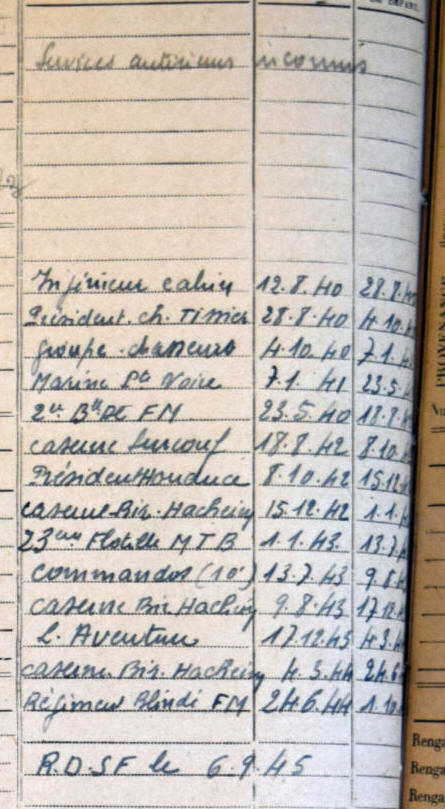 DE DÉPART.
Services antérieurs inconnus
Ingénieur Cahin 12.8.40 28.8.40
Président. Ch. Tissier 28.8.40 4.10.
Groupe chasseurs 4.10.40 7.1.4
Marine Pte Noire 7.1.41 23.5
2em Bon DE FM 23.5.40 18.8.4
Caserne Surcouf 18.8.42 8.10.
Président Honduce 8.10.42 15.12
Caserne Bir. Hacheim 15.12.42 1.1.
23em Flotille MTB 1.1.43. 13.7.
Commandos (10e) 13.7.43 9.8.
Caserne Bir Hacheim 9.8.43 17.12
L. Aventure 17.12.43 4.3.4
Caserne. Bir. Hacheim 4.3.44 24.6
Régiment Blindé FM 24.6.44 1.10
R.D.S.F le 6.9.45
PROVENANCE
Renga
Renga
Renga